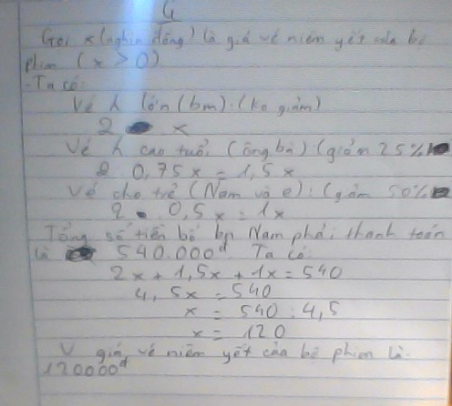 G
Gọi x (nghìn đồng) là giá vé niêm yết của bộ
phim (x > 0)
- Ta có:
Vé lớn (bm): (ko giảm)
2 x
Vé cao tuổi (ông bà) (giảm 25%)
2 0,75x = 1,5x
Vé cho trẻ (Nam và e): (giảm 50%)
2 . 0,5x = 1x
Tổng số tiền bố bn Nam phải thanh toán
là 540.000đ Ta có:
2x + 1,5x + 1x = 540
4,5x = 540
x = 540 : 4,5
x = 120
V giá vé niêm yết của bộ phim là:
120000đ